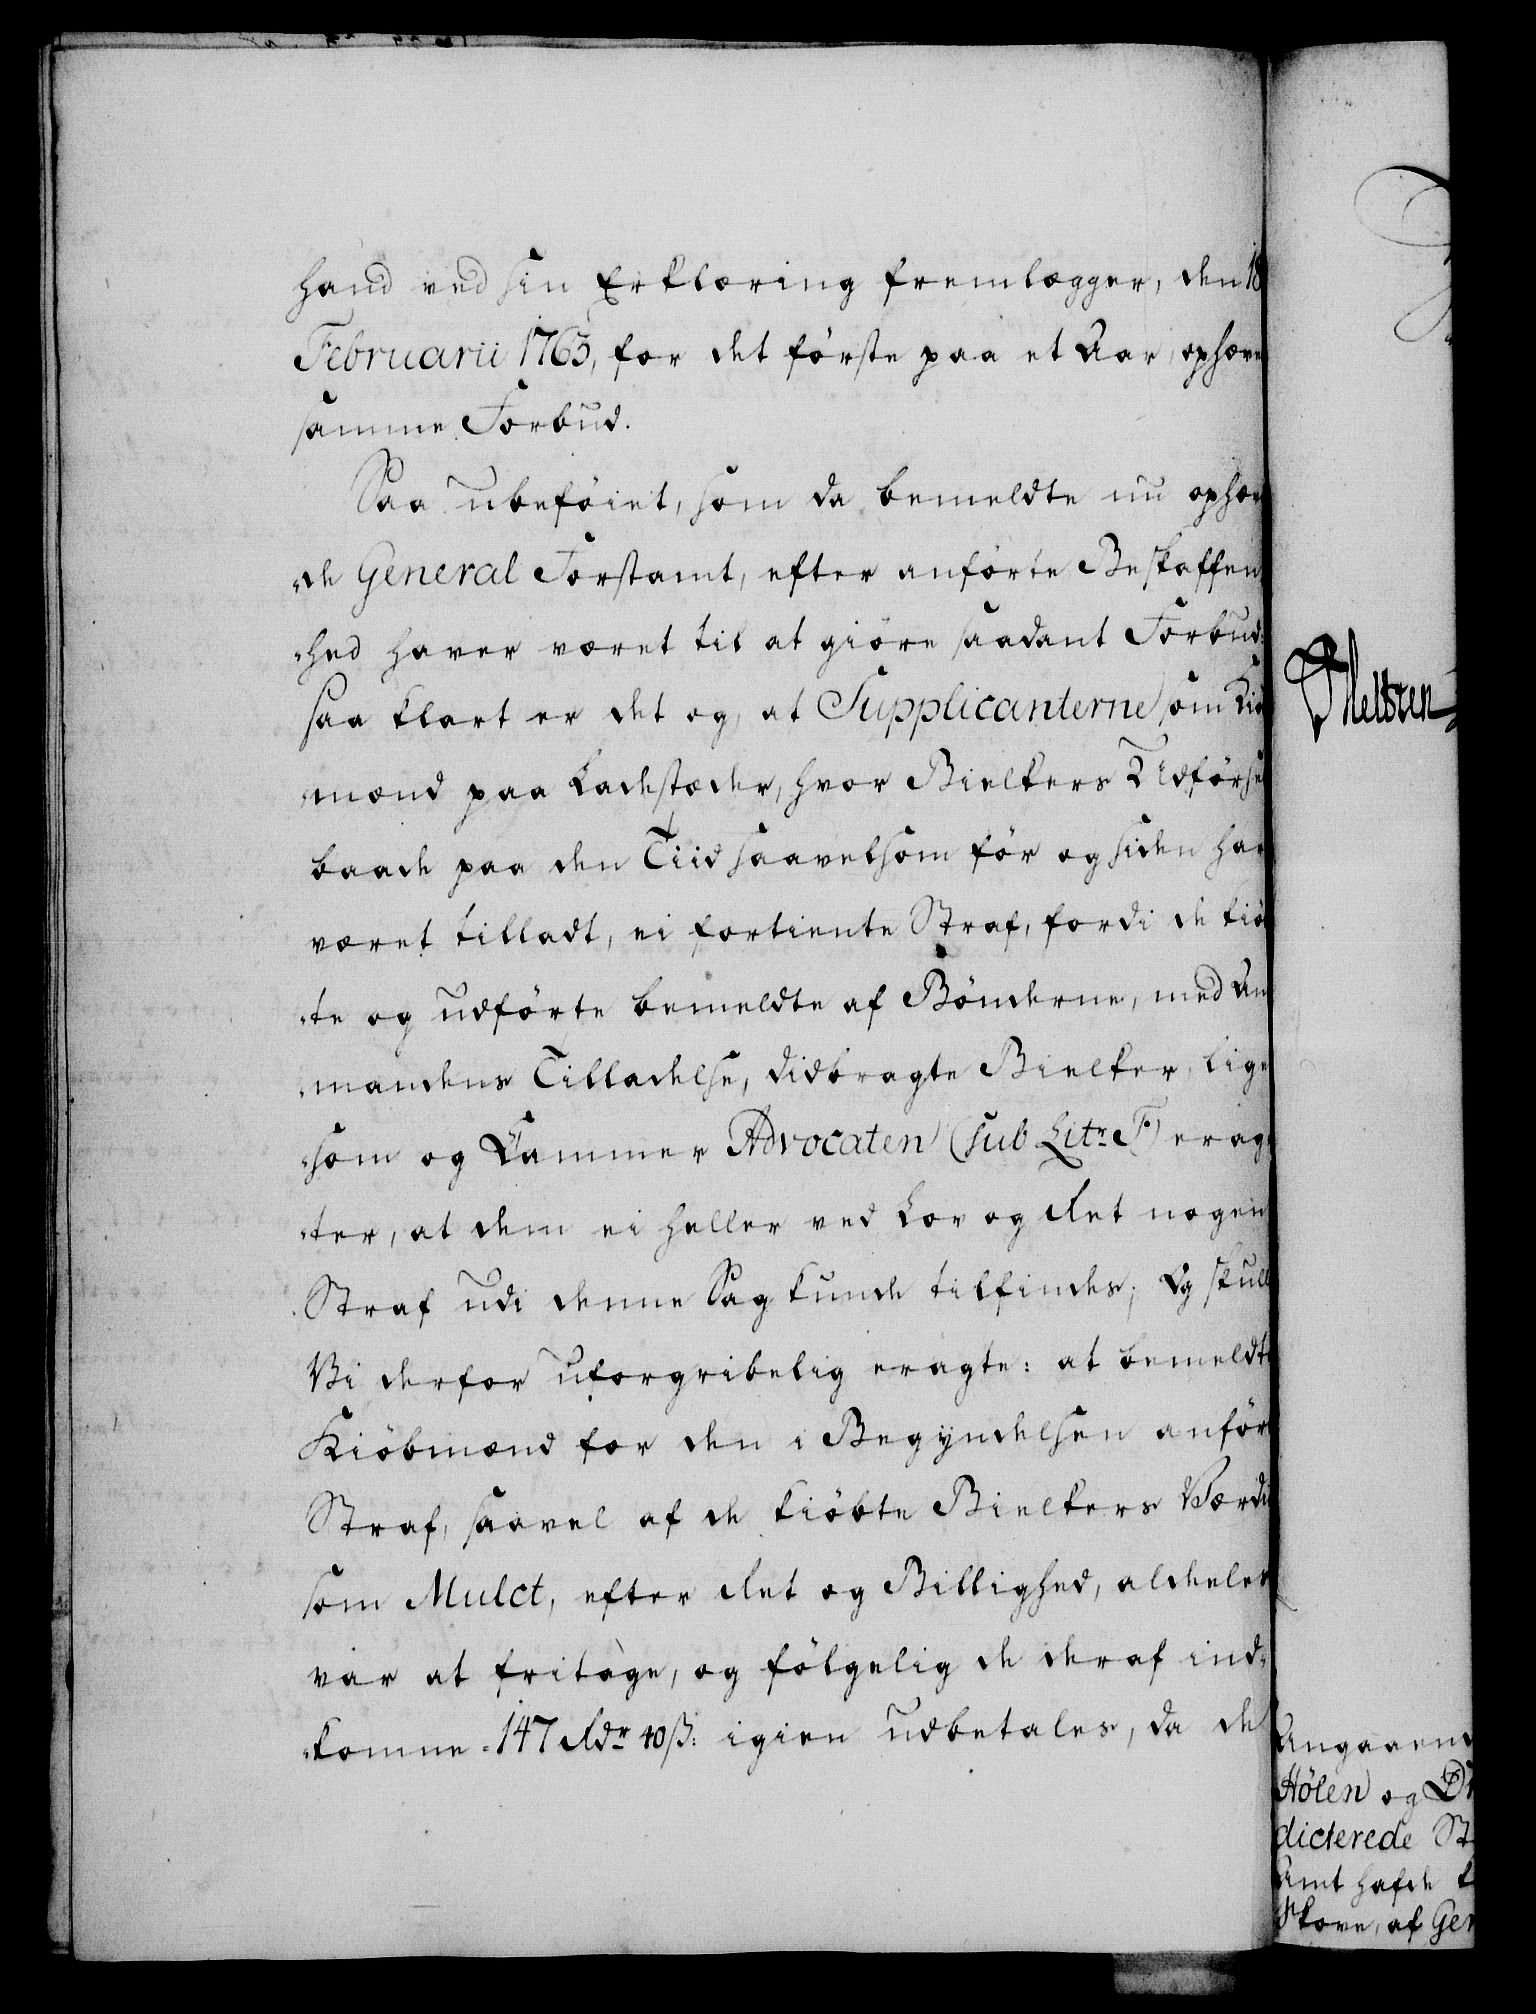 hand ved sin Erklæring fremlægger, den 18
Februarii 1763, for det förste paa et Aar, ophæve
samme Forbud.
Saa ubeföiet, som da bemeldte nu ophæv
de General Forstamt, efter anförte Beskaffen
hed haver været til at giöre saadant Forbud:
saa klart er det og, at Supplicanterne som Kiö
mænd paa Ladestæder, hvor Bielkers Udförse
baade paa den Tiid saavelsom för og siden har
været tilladt, ei fortiente Straf, fordi de kiö
te og udförte bemeldte af Bönderne, med Am
mandens Tilladelse, didbragte Bielker, lige
som og Kammer Advocaten (sub Litr. F) erag
ter, at dem ei heller ved Lov og Ret nogen
Straf udi denne Sag kunde tilfindes; Og skull
Vi derfor uforgribelig eragte: at bemeldte
Kiöbmænd for den i Begyndelsen anför
Straf, saavel af de kiöbte Bielkers Værdi
som Mulct, efter Ret og Billighed, aldeles
var at fritage, og fölgelig de deraf ind-
komne 147 Rdr 40 ß: igien udbetales, da de
Angaaend
Hölen og Dr
dicterede St
Amt hafde k
Skove, af Gen